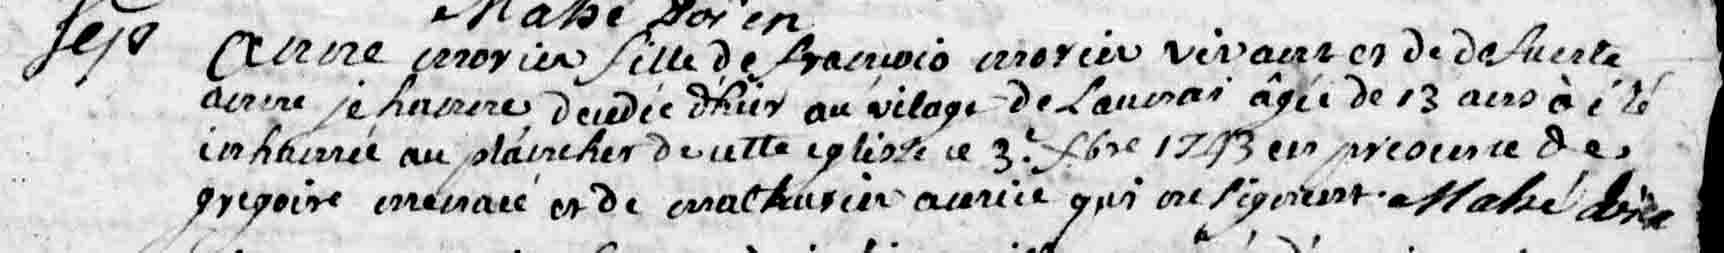 Mahé
Sep Anne morin fille de françois morin vivant et de defuente
anne jehanne decedée d'hier au vilage de Launai âgée de 13 ans à été
inhumée au plancher de cette eglise ce 3e 7bre 1743 en presence de
gregoire menacé et de mathurin annié qui ne signent. Mahé